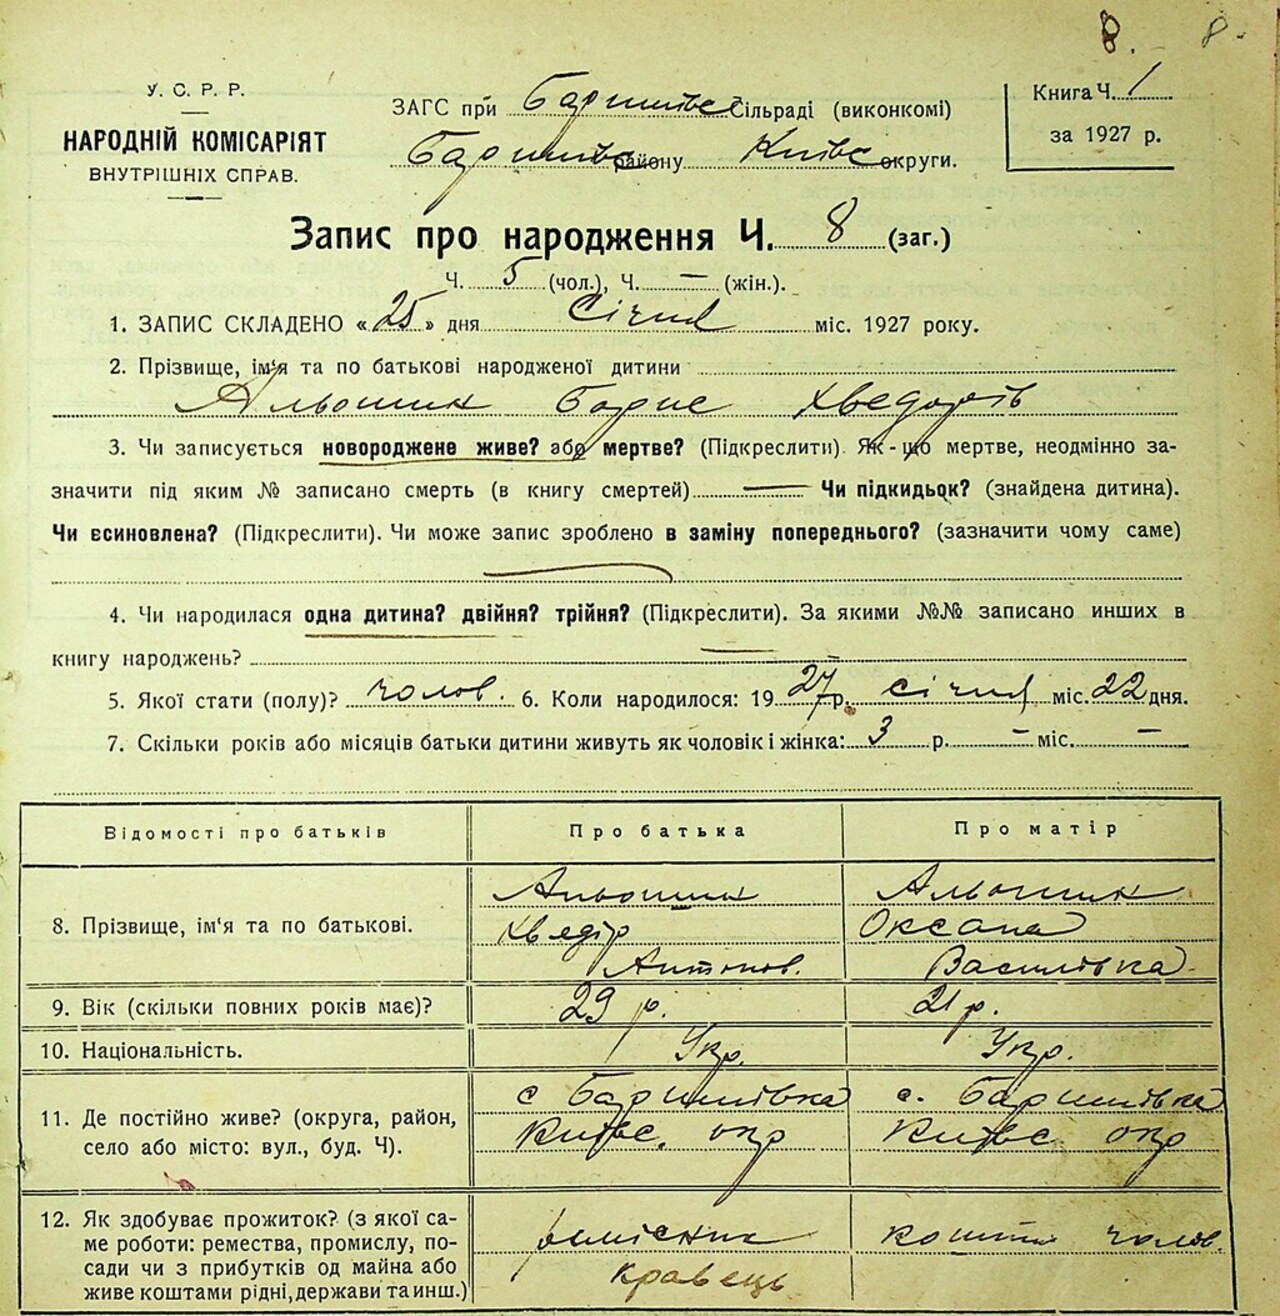 8. 8.
У. С. Р. Р.
НАРОДНІЙ КОМІСАРІЯТ
ВНУТРІШНІХ СПРАВ.
ЗАГС при Баришівс Сільраді (виконкомі)
Баришівс району Київс округи.
Книга Ч. 1
за 1927 р.
Запис про народження Ч. 8 (заг.)
Ч. 5 (чол.), Ч. — (жін.).
1. ЗАПИС СКЛАДЕНО «25» дня Січня міс. 1927 року.
2. Прізвище, ім'я та по батькові народженої дитини
Альошик Борис Хведорів
3. Чи записується новороджене живе? або мертве? (Підкреслити). Як-що мертве, неодмінно за-
значити під яким № записано смерть (в книгу смертей) — Чи підкидьок? (знайдена дитина).
Чи всиновлена? (Підкреслити). Чи може запис зроблено в заміну попереднього? (зазначити чому саме)
4. Чи народилася одна дитина? двійня? трійня? (Підкреслити). За якими №№ записано инших в
книгу народжень? —
5. Якої стати (полу)? чолов. 6. Коли народилося: 1927 р. січня міс. 22 дня.
7. Скільки років або місяців батьки дитини живуть як чоловік і жінка: 3 р. — міс. —
Відомості про батьків Про батька Про матір
8. Прізвище, ім'я та по батькові. Альошик Хведір Антонов. Альошик Оксана Василівка
9. Вік (скільки повних років має)? 29 р. 21 р.
10. Національність. Укр. Укр.
11. Де постійно живе? (округа, район, с Баришівка с. Баришівка
село або місто: вул., буд. Ч). Київс. окр Київс. окр
12. Як здобуває прожиток? (з якої са-
ме роботи: ремества, промислу, по- ремісник кошти чолов.
сади чи з прибутків од майна або кравець
живе коштами рідні, держави та инш.)